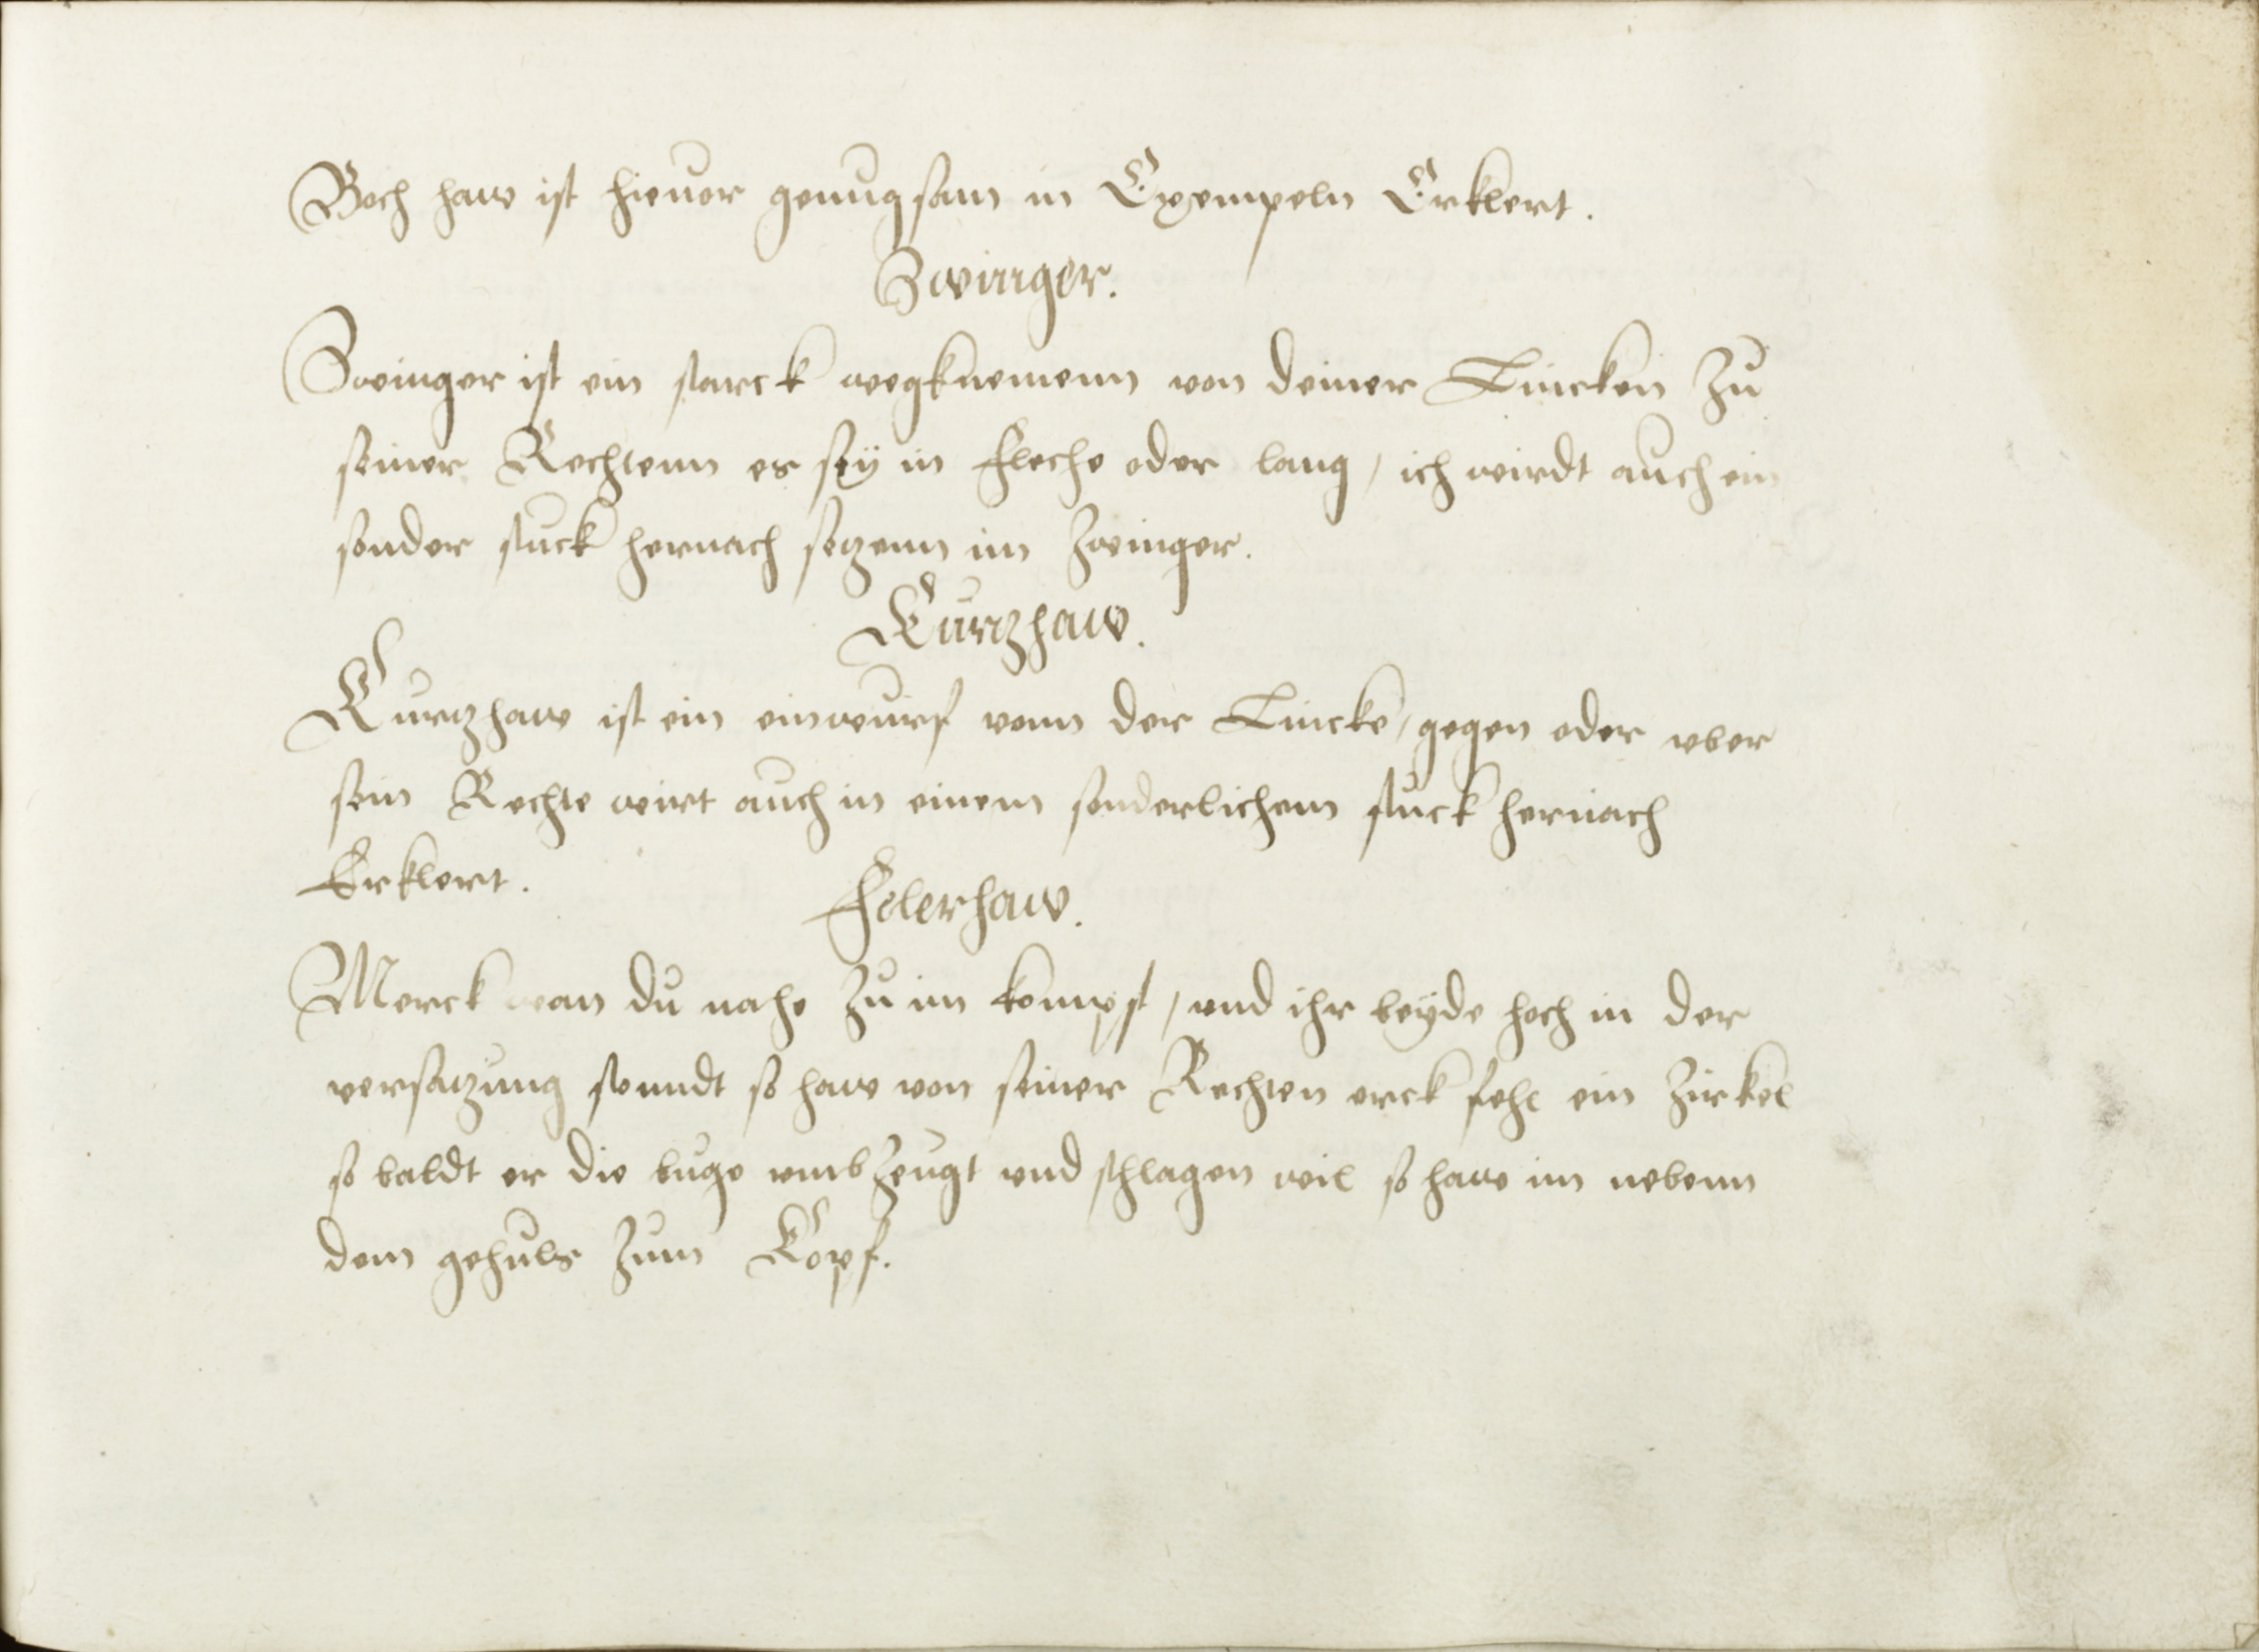 Boch haw ist hieuor genugsam in Exempeln Erklert.
Zwinger.
Zwinger ist ein starck wegknemenn von deiner Lincken zu
seiner Rechtenn es seÿ in fleche oder lang / ich wirdt auch ein
sonder stuck hernach setzenn im Zwinger.
Kurtzhaw.
Kurtzhaw ist ein einwurf vonn der Lincke / gegen oder vber
sein Rechte wirt auch in einem sonderlichem stuck hernach
Erklert.
Felerhaw.
Merck wan du nahe zu im kompst / vnd ihr beyde hoch in der
versatzung stenndt so haw von seiner Rechten erck fehl ein zirkel
so baldt er die luge vmbzeugt vnd schlagen wil so haw im nebenn
dem gehuls zum Kopf.